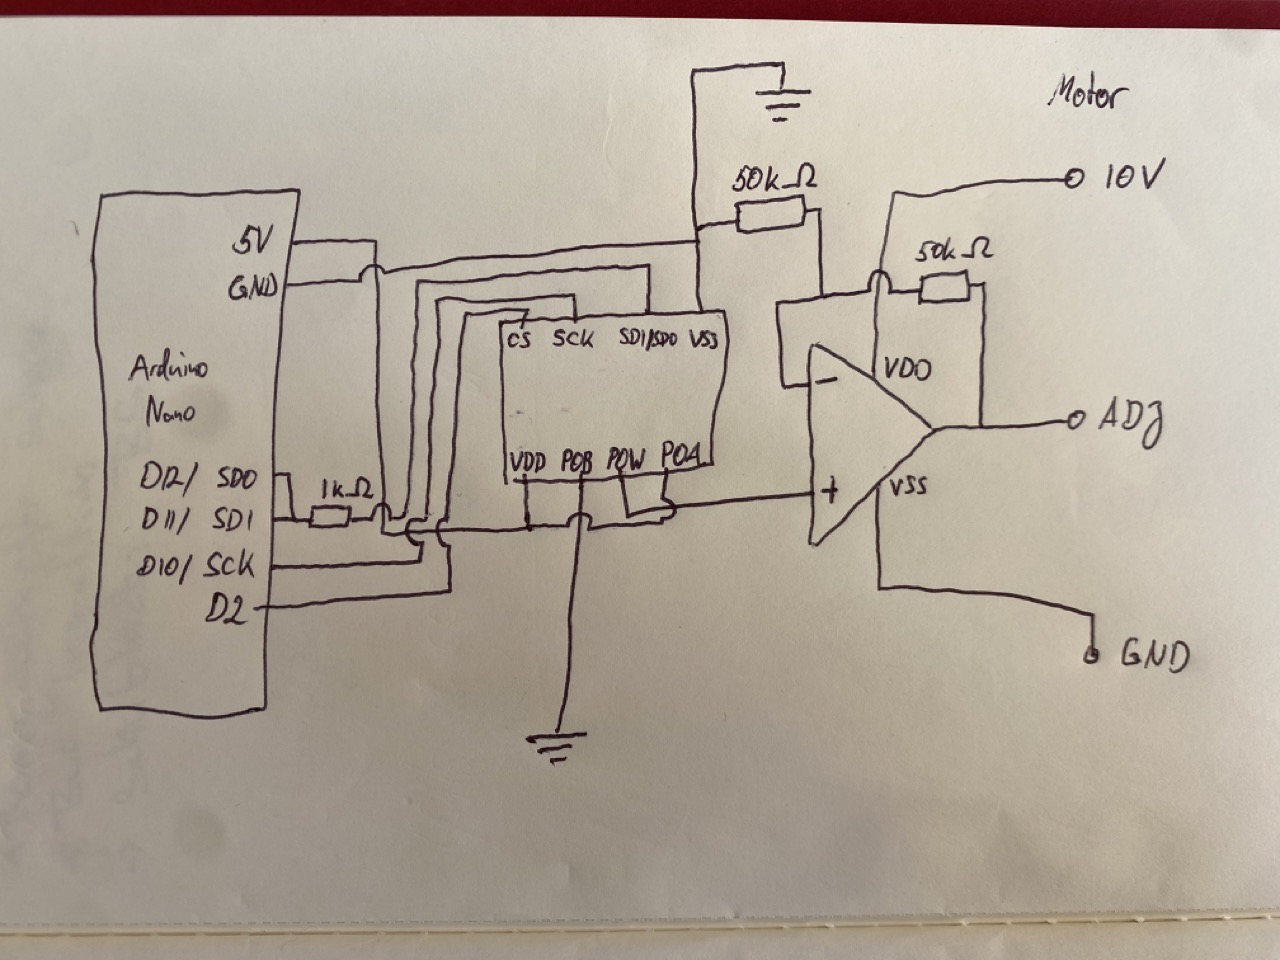 Motor
10V
50kΩ
50kΩ
5V
GND
CS SCK SDI/SDO VSS
Arduino
Nano
- VDD
ADJ
VDD P0B P0W P0A
D12/ SDO
1kΩ
D11/ SDI
+ VSS
D10/ SCK
D2
GND